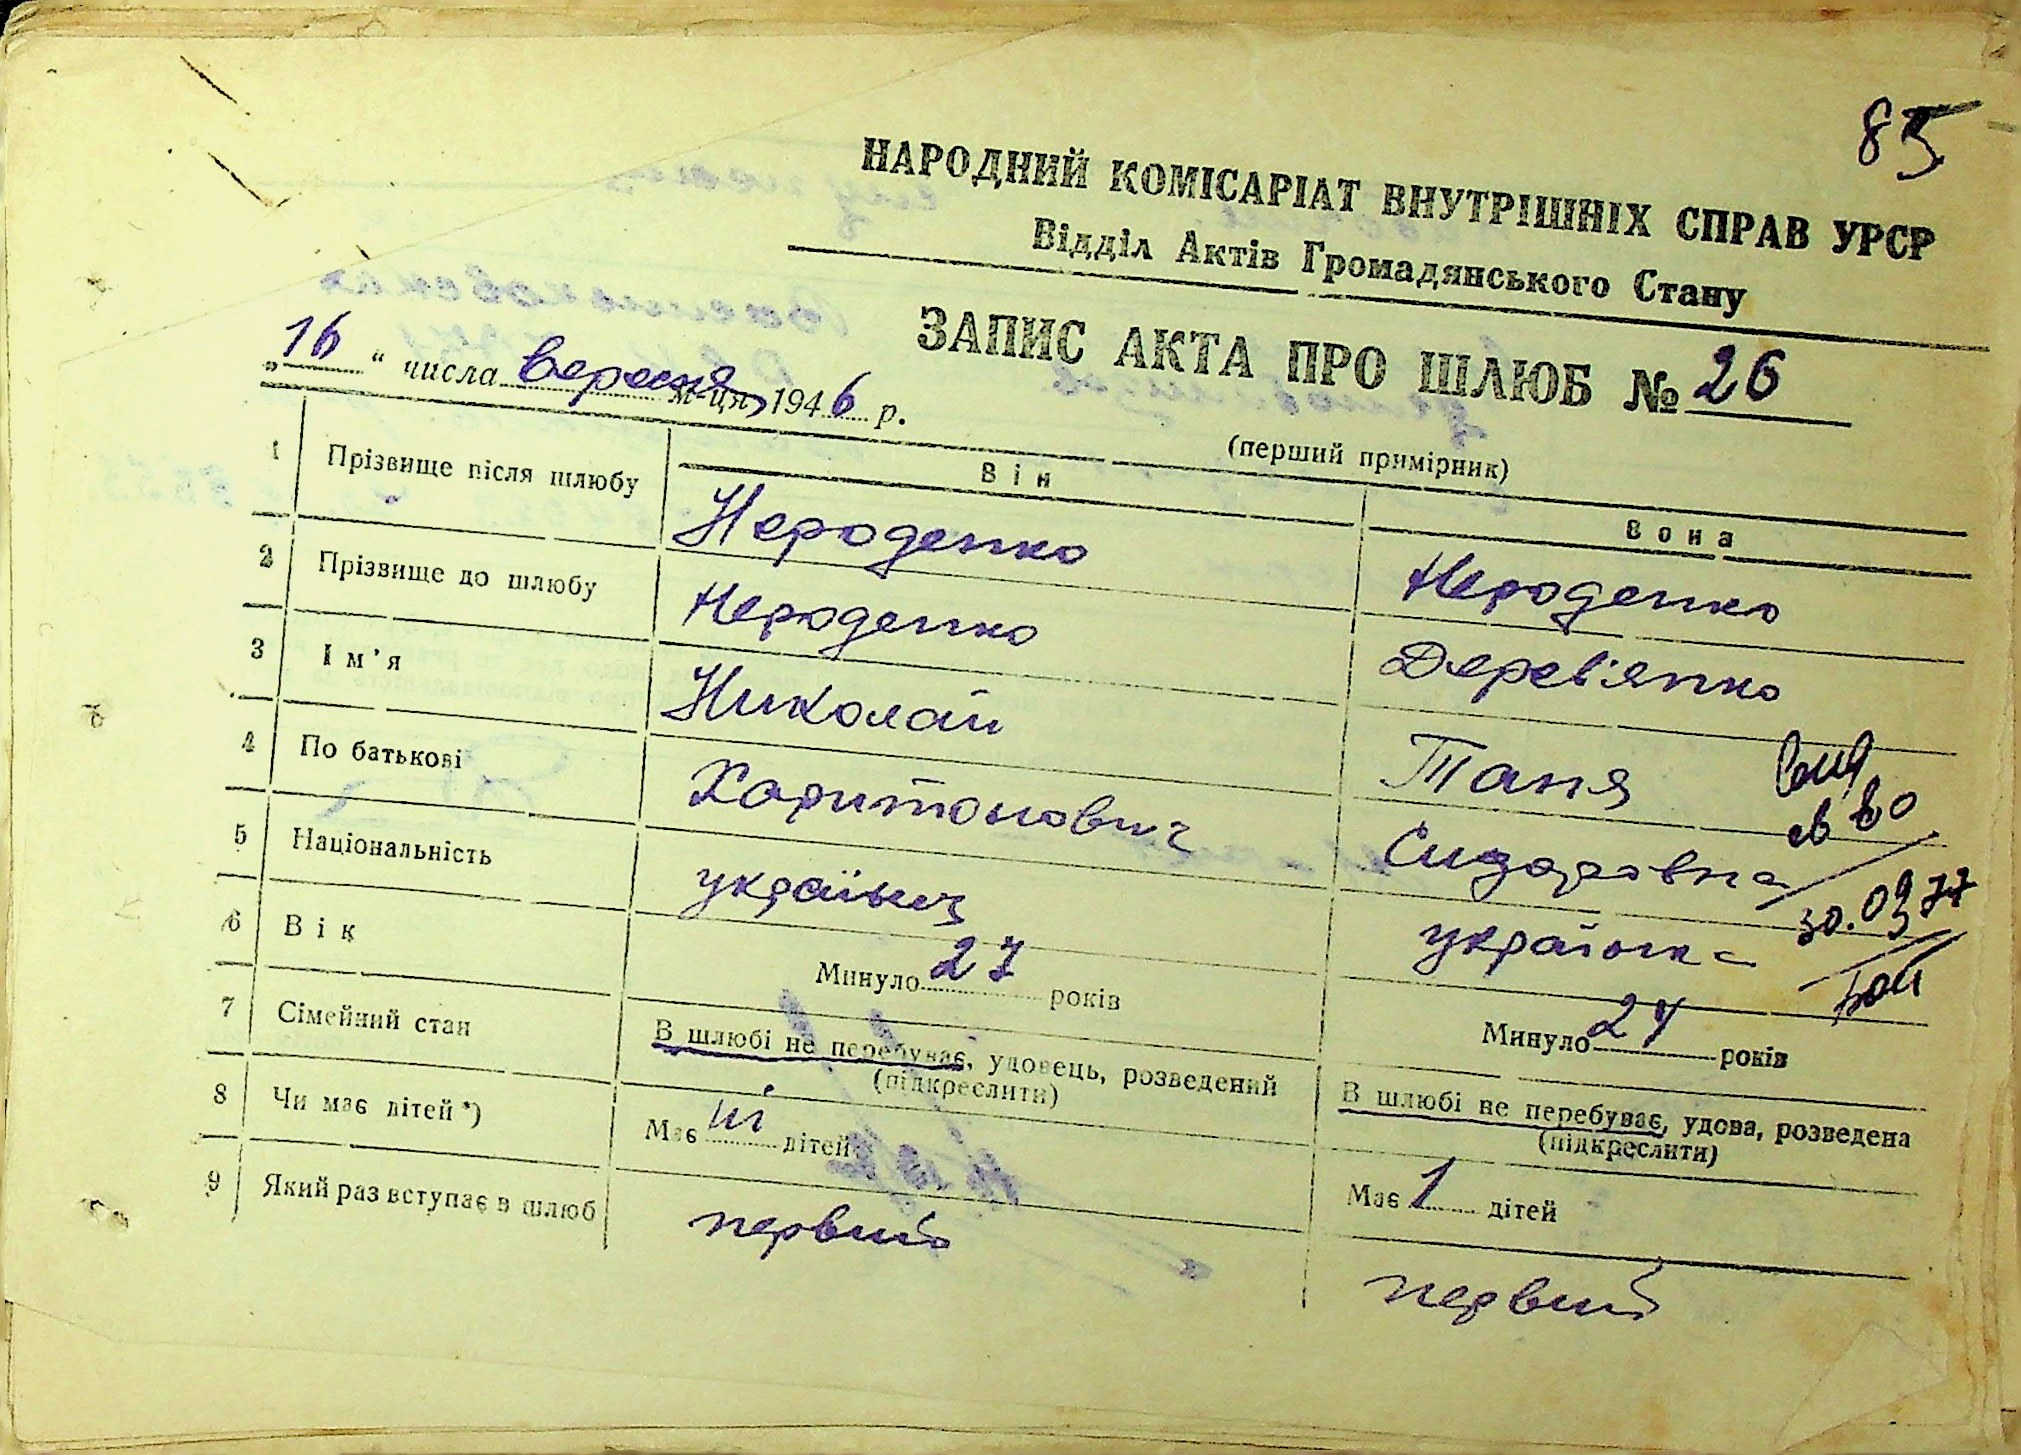 85
НАРОДНИЙ КОМІСАРІАТ ВНУТРІШНІХ СПРАВ УРСР
Відділ Актів Громадянського Стану
ЗАПИС АКТА ПРО ШЛЮБ № 26
„16“ числа вересня м-ця 1946 р.
(перший примірник)
Він Вона
1 Прізвище після шлюбу Нероденко Нероденко
2 Прізвище до шлюбу Нероденко Дерев'янко
3 Ім'я Николай Таня
4 По батькові Харитонович Сидоровна
5 Національність українец українка
30.09.77
6 Вік Минуло 27 років Минуло 24 років
7 Сімейний стан В шлюбі не перебуває, удовець, розведений В шлюбі не перебуває, удова, розведена
(підкреслити) (підкреслити)
8 Чи має дітей *) Має ні дітей Має 1 дітей
9 Який раз вступає в шлюб первий первий